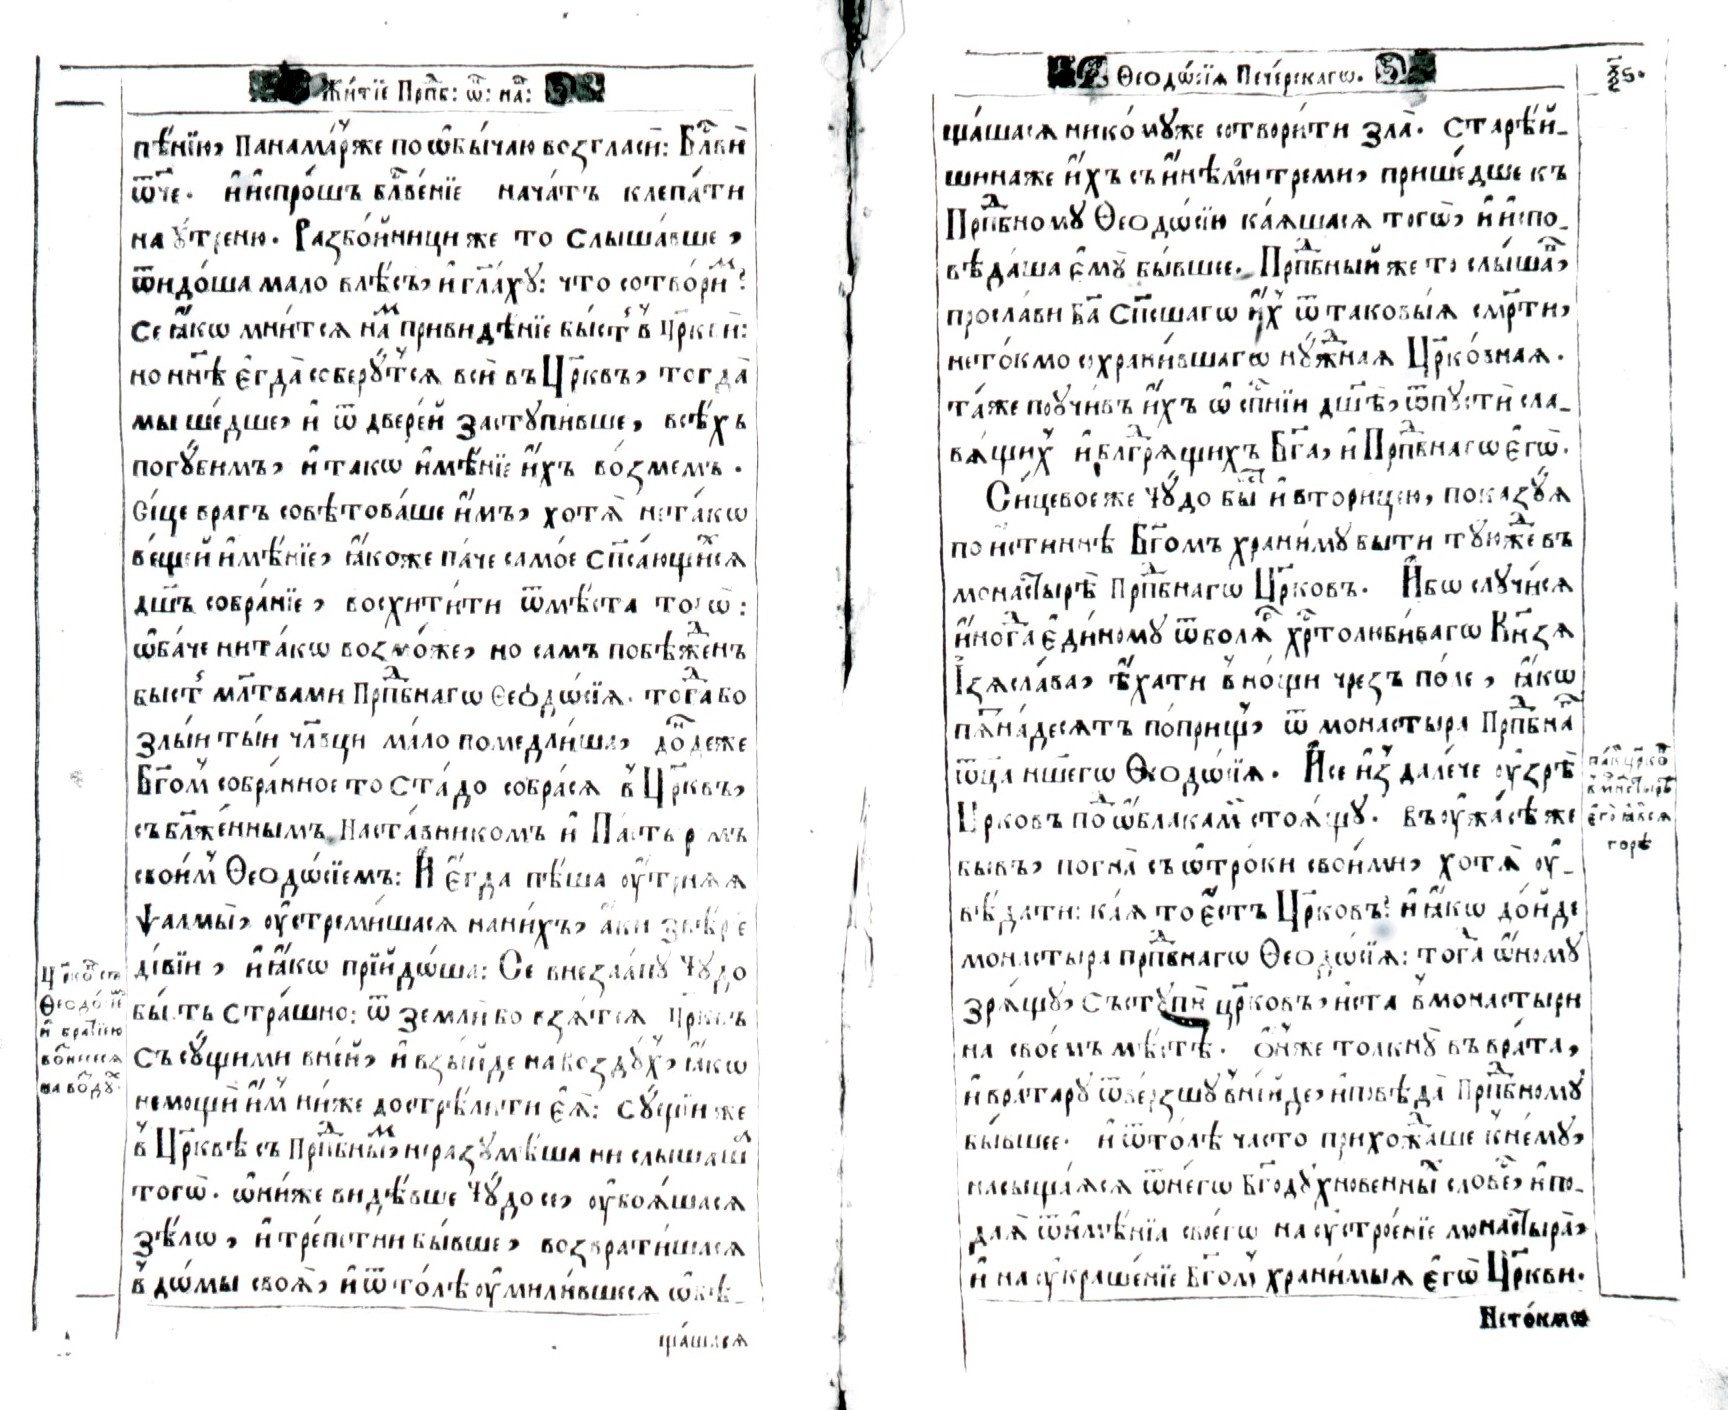 Жи́тїе Прпⷣб: ѿ: на́:
пѣ́нїю, Панама́рже по ѡ҆бы́чаю возгласи̂: Бл҃ви̂
ѿ́че. и҆ и҆спро́шъ бл҃ве́нїе нача́тъ клепа́ти
на у́треню. Разбо́йницы же то слыша́вше,
ѿидо́ша мало влѣ́съ, и҆ гл҃аху: что сотвори́мъ?
Се ꙗ҆́кѡ мни́тся на́мъ привидѣ́нїе бы́сть в̾ Цр҃кви:
но нн҃ѣ є҆гда̀ соберу́тся вси̂ въ Цр҃квь, тогда̀
мы ше́дше, и҆ ѿ двере́й заступи́вше, всѣ́хъ
погу́бимъ, и҆ такѡ и҆мѣ́нїе и҆́хъ во́змемъ.
Си́це врагъ совѣ́това́ше и҆́мъ, хотя̀ не та́кѡ
ве́щей и҆мѣ́нїе, ꙗ҆́коже па́че само́е сп҃са́ющихся
дш҃ъ собра́нїе, восхити́ти ѿ мѣ́ста тогѡ̀:
ѡ҆ба́че ни та́кѡ возмо́же, но самъ побѣжде́нъ
бы́сть мл҃твами Прпⷣбнагѡ Ѳеодѡ́сїя. тогда̀ бо
злы́и ты́и чл҃вцы ма́ло помедли́ша, до́ндеже
Бг҃омъ собра́нное то Ста́до собра́ся в̾ Цр҃квь,
съ бл҃же́ннымъ Наста́вникомъ и҆ Па́стыремъ
свои́мъ Ѳеодѡ́сїемъ: И҆ є҆гда̀ пѣ́ша оу҆́треняя
ѱалмы̀, оу҆стреми́шася на ни́хъ, а҆́ки звѣ́рїе
ди́вїи, и҆ ꙗ҆́кѡ прїйдо́ша: Се внеза́апу чу́до
бы́сть стра́шно: ѿ земли̂ бо взя́тся Цр҃квь
съ су́щими в не́й, и҆ взы́йде на возду́хъ, ꙗ҆́кѡ
немощи̂ и҆́мъ ни́же дострѣ́лити є҆я̀: су́щїи же
в̾ Цр҃квѣ съ Прпⷣбнымъ, не разумѣ́ша ни слыша́ша
тогѡ̀. ѡ҆ни́же ви́дѣвше чу́до се, оу҆боя́шася
зѣ́лѡ, и҆ тре́петни бы́вше, возврати́шася
в̾ дѡ́мы своя̀, и҆ ѿто́лѣ оу҆мили́вшеся ѡ҆бѣ-
ща́шася
Цр҃ковь съ
Ѳеодо́сїе
и҆ бра́тїею
во́знесеся
на во́здухъ.
Ѳеодѡ́сїя Пече́рскагѡ.
ѯ҃ѕ.
ща́шася нико́муже сотвори́ти зла̀. Старѣ́й-
шина же и҆́хъ съ и҆нѣ́ми треми̂, прише́дше къ
Прпⷣбному Ѳеодѡ́сїю ка́яшася тогѡ̀, и҆ и҆спо-
вѣ́даша є҆му̀ бы́вшее. Прпⷣбный же то слы́шавъ,
просла́ви Бг҃а Сп҃сшагѡ и҆́хъ ѿ таковы́я сме́рти,
не то́кмо сохрани́вшагѡ ну́жная Цр҃ко́вная.
та́же поучи́въ и҆́хъ ѡ҆ сп҃се́нїи дш҃ѣ, ѿпусти̂ сла-
вя́щихъ и҆ блг҃даря́щихъ Бг҃а, и҆ Прпⷣбнагѡ є҆гѡ̀.
Си́цевое же чу́до бы́сть и҆ вторицею, показу́я
по и҆́стиннѣ Бг҃омъ храни́му бы́ти ту́южде въ
монастырѣ̀ Прпⷣбнагѡ Цр҃ковь. И҆́бѡ случи́ся
и҆ногда̀ є҆ди́ному ѿ боля́ръ хр҃толюби́вагѡ Кн҃зя
І҆зясла́ва, ѣ҆́хати в̾ нощи̂ чрезъ по́ле, ꙗ҆́кѡ
пятьна́десять по́прищъ, ѿ монастыра Прпⷣбнагѡ
ѿц҃а нш҃егѡ Ѳеодѡ́сїя. И҆ се и҆з̾ дале́че оу҆зрѣ̀
Цр҃ковь по ѡ҆́блакамъ стоя́щу. въ оу҆́жасѣ же
бы́въ, погна̀ съ ѡ҆́троки свои́ми, хотя̀ оу҆-
вѣ́дати: ка́я то є҆́сть Цр҃ковь? и҆ ꙗ҆́кѡ до́йде
монастыра прпⷣбнагѡ Ѳеодѡ́сїя: тогда̀ ѡ҆́ному
зря́щу, съступи̂ цр҃ковь, и҆ ста̀ в̾ монастыри
на свое́мъ мѣ́стѣ. Ѻ҆́нже толкну̀ въ врата̀,
и҆ врата́ру ѿве́рзшу вни́йде, и҆ повѣ́да Прпⷣбному
бы́вшее. и҆ ѿто́лѣ часто прихожда́ше к̾ нему̀,
насыща́яся ѿ негѡ̀ Бг҃оду́хновенныхъ слове́съ, и҆ по-
дая̀ ѿ и҆мѣ́нїя своегѡ̀ на оу҆строе́нїе монастыра̀,
и҆ на оу҆краше́нїе Бг҃омъ храни́мыя є҆гѡ̀ Цр҃кви.
Не то́кмѡ
па́ки Цр҃ковь
в̾ монастырѣ
є҆гѡ̀ ꙗ҆ви́ся
горѣ̀